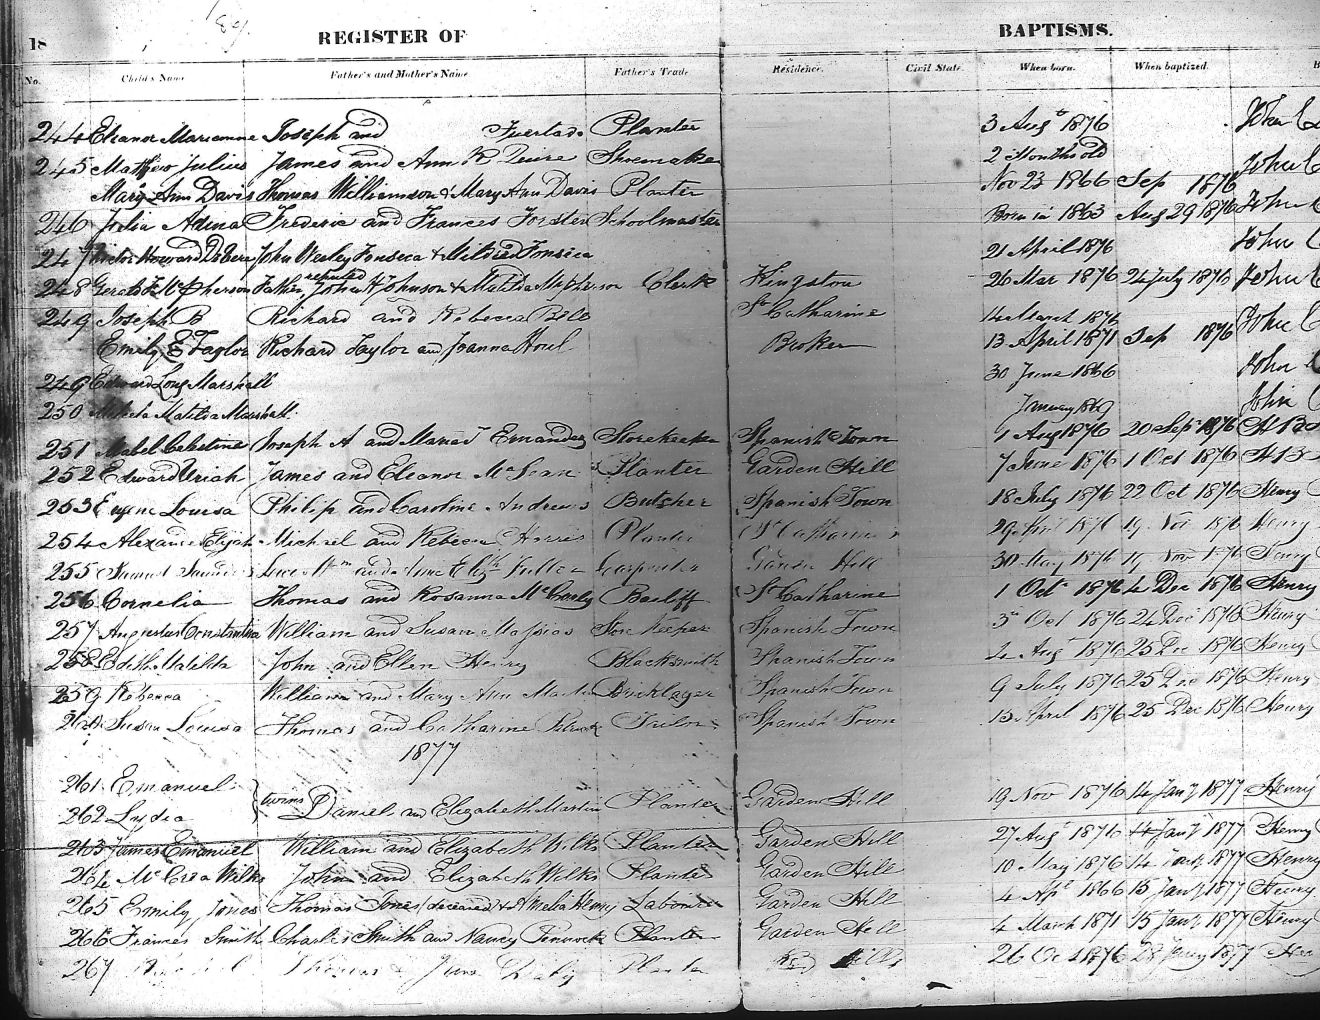 189.
18 REGISTER OF BAPTISMS.
No. Child's Name Father's and Mother's Name Father's Trade Residence. Civil State. When born. When baptized.
244 Eleanor Marianne Joseph and Furtado Planter 3 Augt 1876 John
245 Mathew Julius James and Ann R Quire Shoemaker 2 Months old John
Mary Ann Davis Thomas Williamson & Mary Ann Davis Planter Nov 23 1866 Sep 1876 John
246 Julia Adina Frederic and Frances Forsten Schoolmaster Born in 1863 Aug 29 1876 John
247 Victor Howard John Wesley Fonseca & Mildred Fonseca 21 April 1876 John
248 McPherson reputed Father John Johnson & Matilda McPherson Clerk Kingston 26 Mar 1876 24 July 1876 John
249 Joseph B Richard and Rebecca St Catharine 14 March 1876 John
Emily E Taylor Richard Taylor and Joanna Broker 13 April 1871 Sep 1876 John
249 Edward Long Marshall 30 June 1866 John
250 Matilda Marshall January 1869 John
251 Mabel Celestine Joseph A and Ernandez Storekeeper Spanish Town 1 Aug 1876 20 Sept 1876 H B
252 Edward Uriah James and Eleanor McLean Planter Garden Hill 7 June 1876 1 Oct 1876 H B
253 Eugene Louisa Philip and Caroline Andrews Butcher Spanish Town 18 July 1876 22 Oct 1876 Henry
254 Elijah Michael and Rebecca Harris Planter St Catharine 29 1876 19 Nov 1876 Henry
255 Samuel Fuller Carpenter Garden Hill 30 May 1876 19 Nov 1876 Henry
256 Cornelia Thomas and Rosanna Bailiff St Catharine 1 Oct 1876 4 Dec 1876 Henry
257 Augustus Constantine William and Susan Massias Store Keeper Spanish Town 3rd Oct 1876 24 Dec 1876 Henry
258 Edith Matilda John and Ellen Henry Blacksmith Spanish Town 4 Augt 1876 25 Dec 1876 Henry
259 Rebecca William and Mary Ann Bricklayer Spanish Town 9 July 1876 25 Dec 1876 Henry
260 Susan Louisa Thomas and Catharine Patrick Spanish Town 15 April 1876 25 Dec 1876 Henry
1877
261 Emanuel
262 Lydia } twins Daniel and Elizabeth Martin Planter Garden Hill 19 Nov 1876 14 Jany 1877 Henry
263 James Emanuel William and Elizabeth Wilks Planter Garden Hill 27 Augt 1876 14 Jany 1877 Henry
264 McCrea Wilks John and Elizabeth Wilks Planter Garden Hill 10 May 1876 14 Jany 1877 Henry
265 Emily Jones Thomas Jones deceased & Amelia Henry Labourer Garden Hill 4 Apl 1866 15 Jany 1877 Henry
266 Frances Smith Charles Smith and Nancy Pennock Planter Garden Hill 4 March 1871 15 Jany 1877 Henry
267 Thomas & Jane Planter Hills 26 Oct 1876 28 Jany 1877